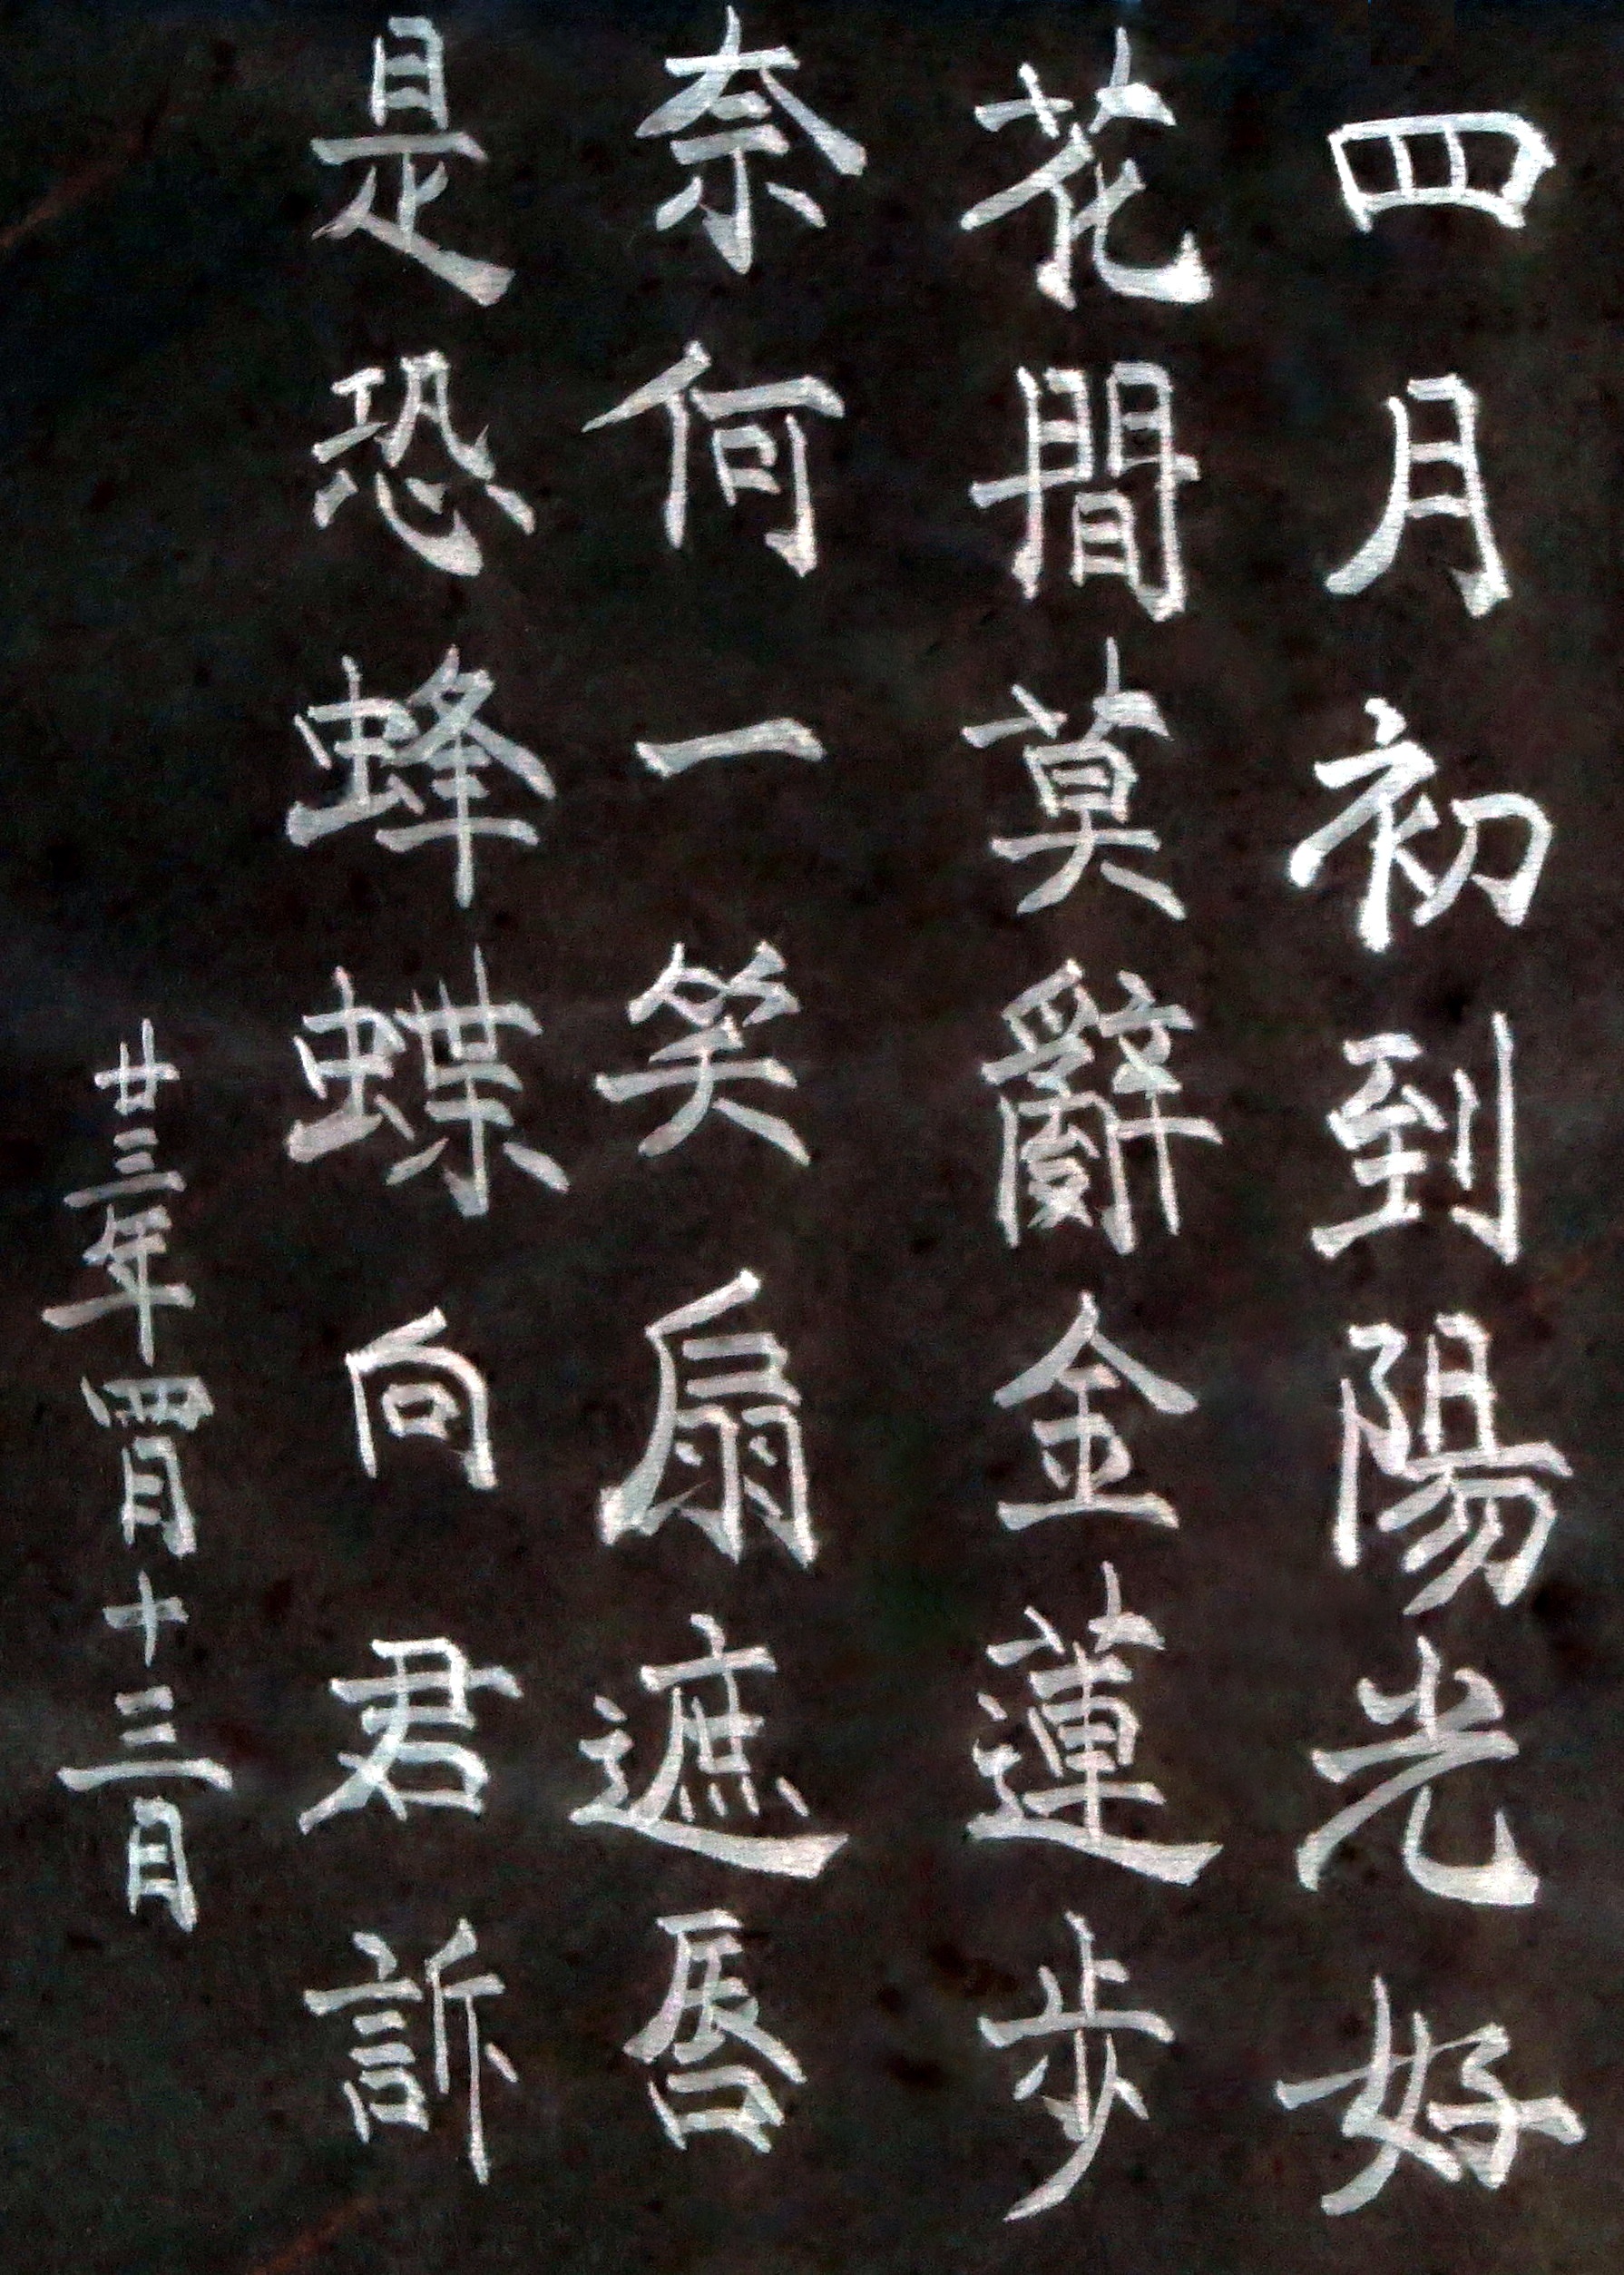 四月初到陽光好
花間莫辭金蓮步
奈何一笑扇遮唇
是恐蜂蝶向君訴
廿三年四月十三日